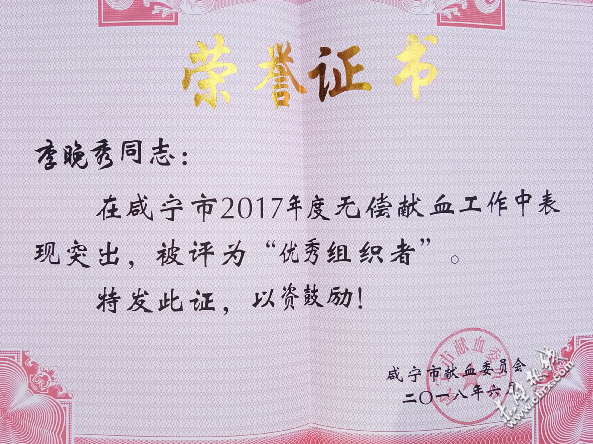 荣誉证书
李晚秀同志：
在咸宁市2017年度无偿献血工作中表
现突出，被评为“优秀组织者”。
特发此证，以资鼓励！
咸宁市献血委员会
二〇一八年六月